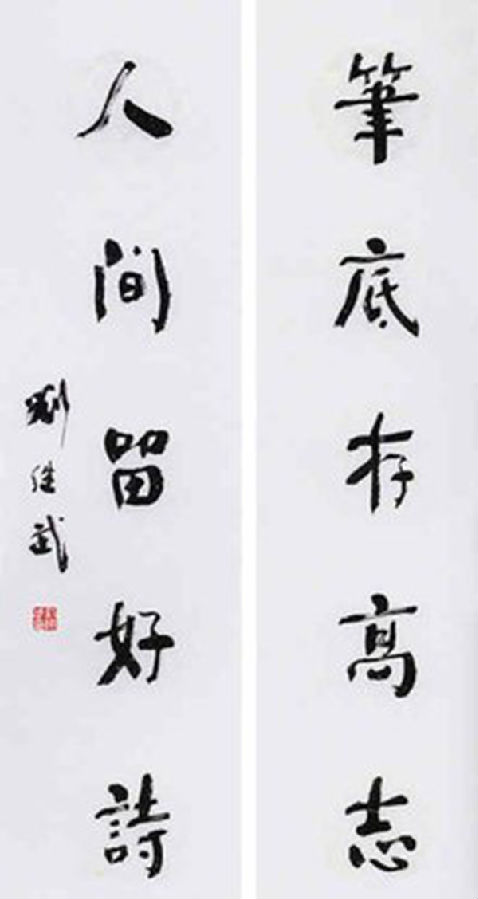 筆底存高志
人間留好詩
劉继武